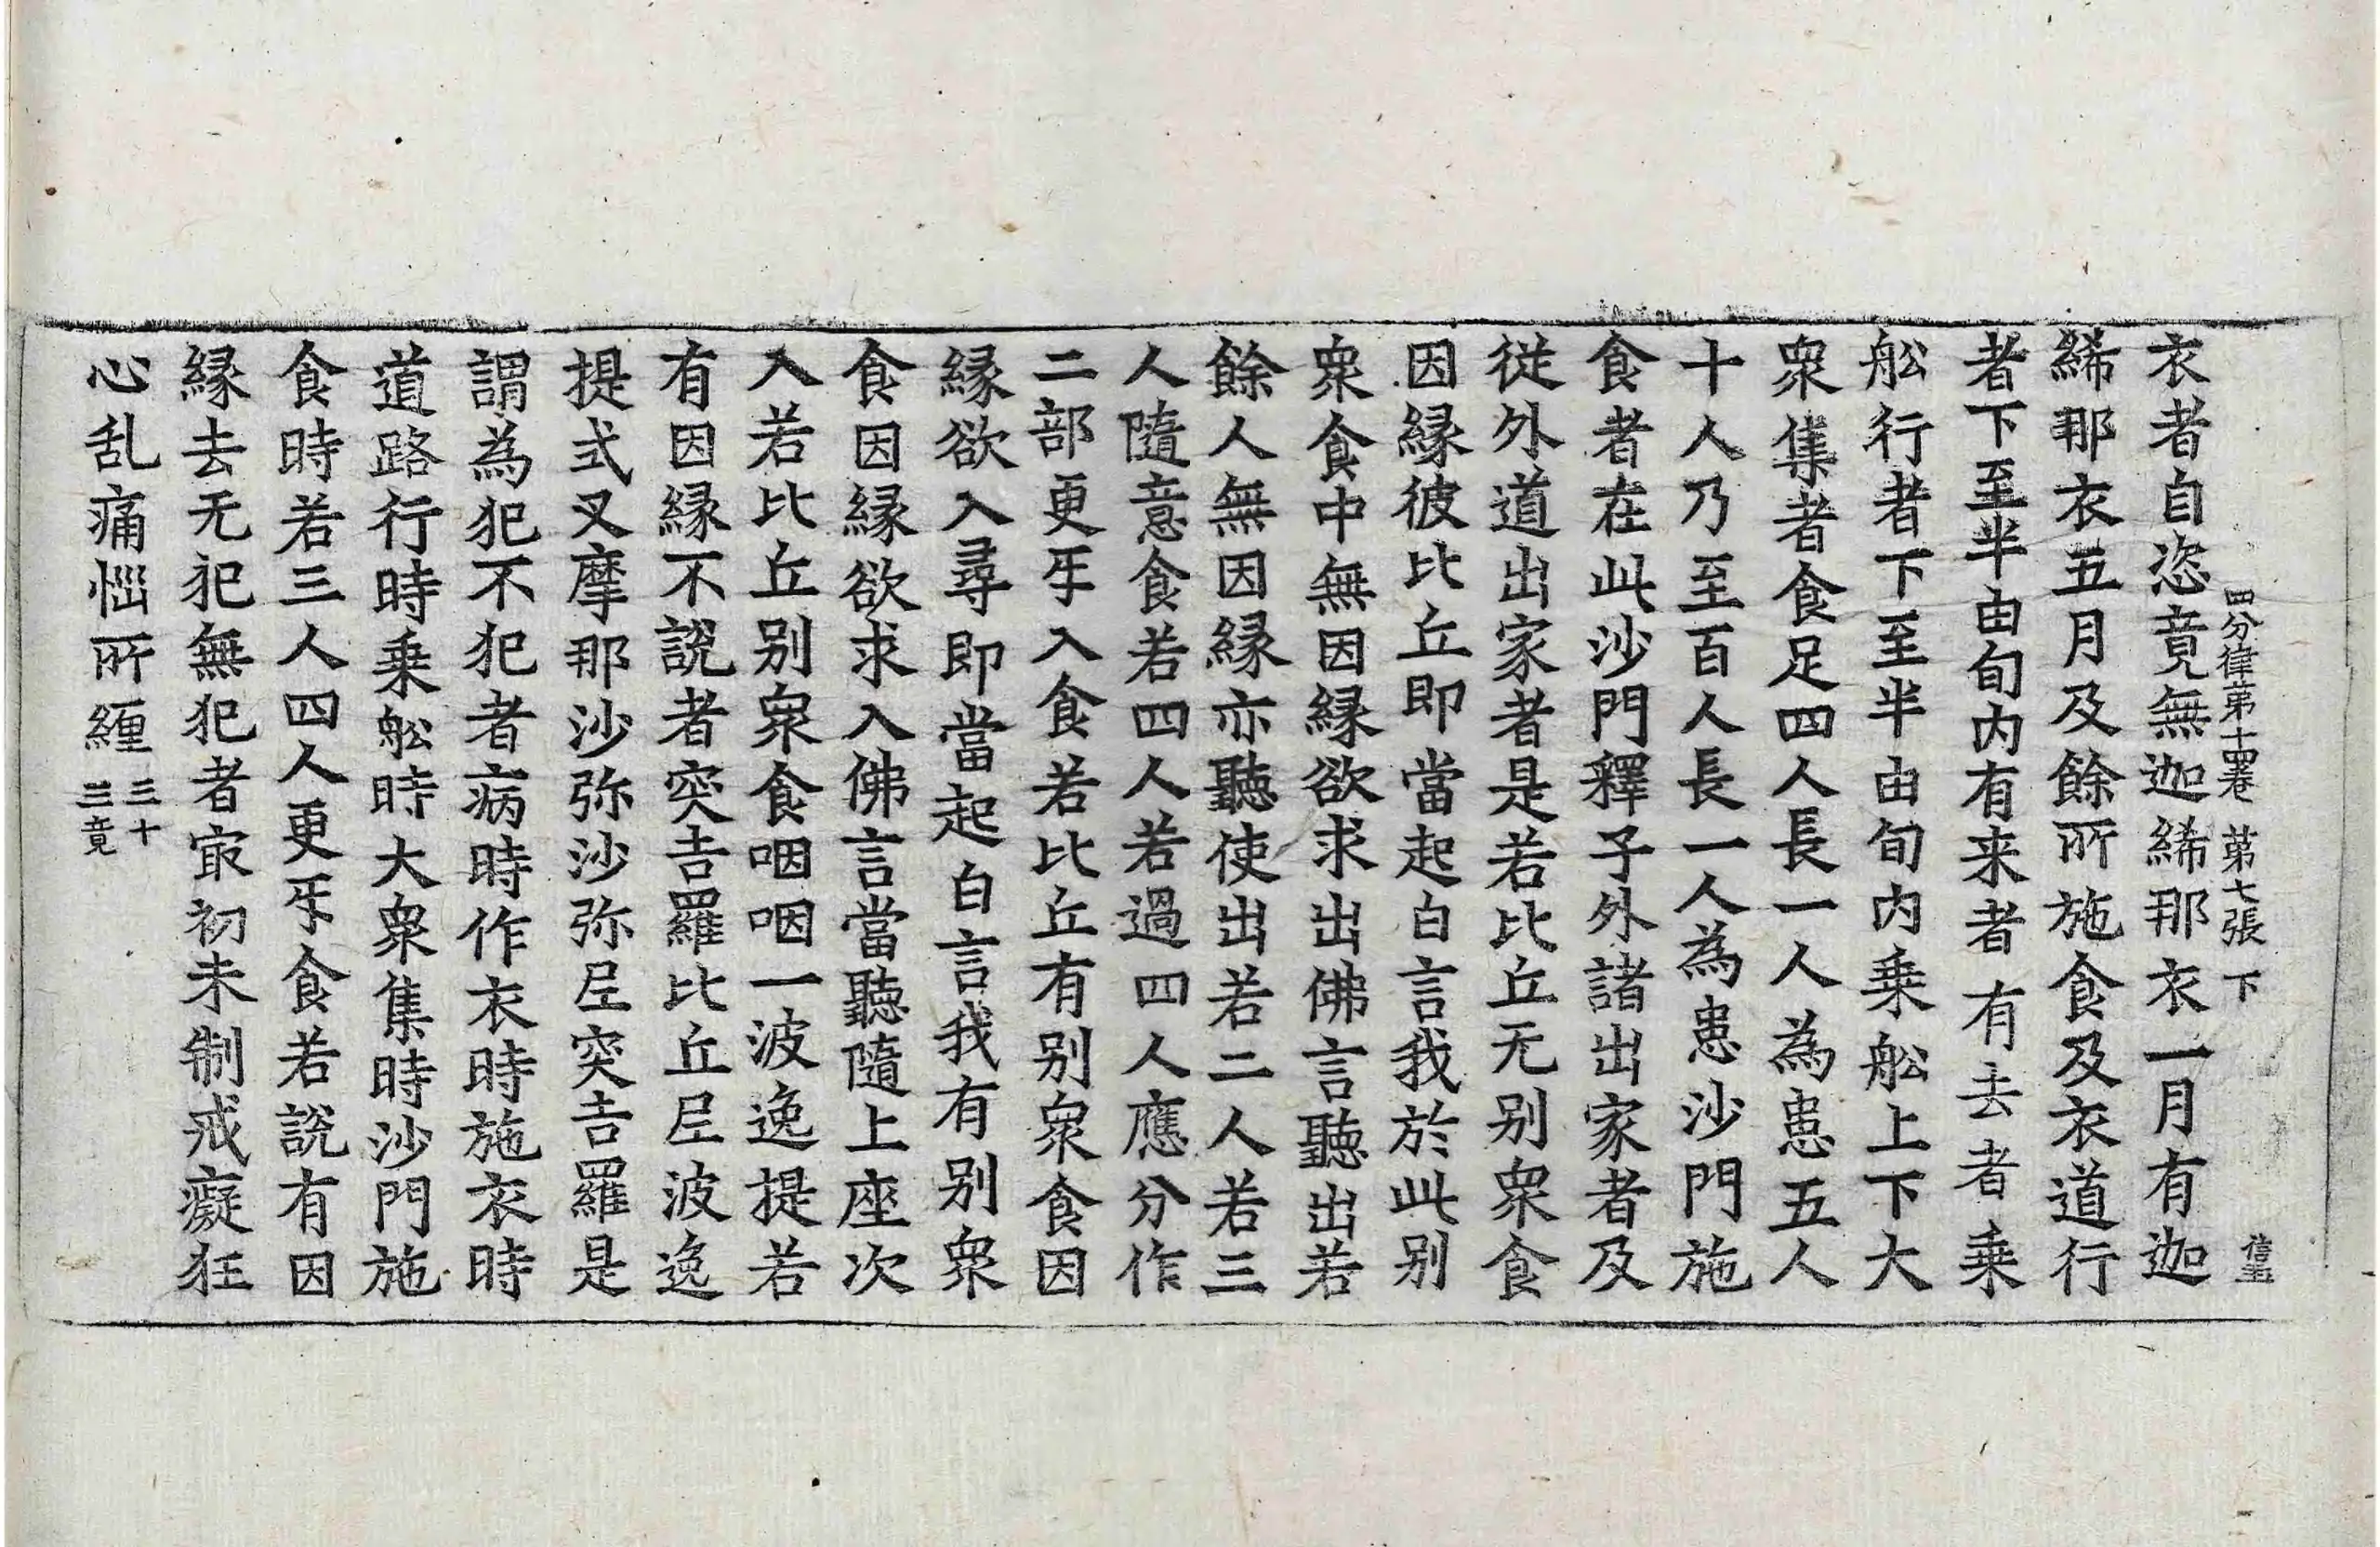 四分律第十四卷　第七張　下
衣者自恣竟無迦絺那衣一月有迦
絺那衣五月及餘所施食及衣道行
者下至半由旬内有来者有去者乗
舩行者下至半由旬内乗舩上下大
衆集者食足四人長一人為患五人
十人乃至百人長一人為患沙門施
食者在此沙門釋子外諸出家者及
従外道出家者是若比丘无别衆食
因縁彼比丘即當起白言我於此别
衆食中無因縁欲求出佛言聽出若
餘人無因縁亦聽使出若二人若三
人隨意食若四人若過四人應分作
二部更㸦入食若比丘有别衆食因
縁欲入尋即當起白言我有别衆
食因縁欲求入佛言當聽隨上座次
入若比丘别衆食咽咽一波逸提若
有因縁不說者突吉羅比丘尼波逸
提式叉摩那沙弥沙弥尼突吉羅是
謂為犯不犯者病時作衣時施衣時
道路行時乗舩時大衆集時沙門施
食時若三人四人更㸦食若說有因
縁去无犯無犯者㝡初未制戒癡狂
心乱痛惱所纒三十三竟